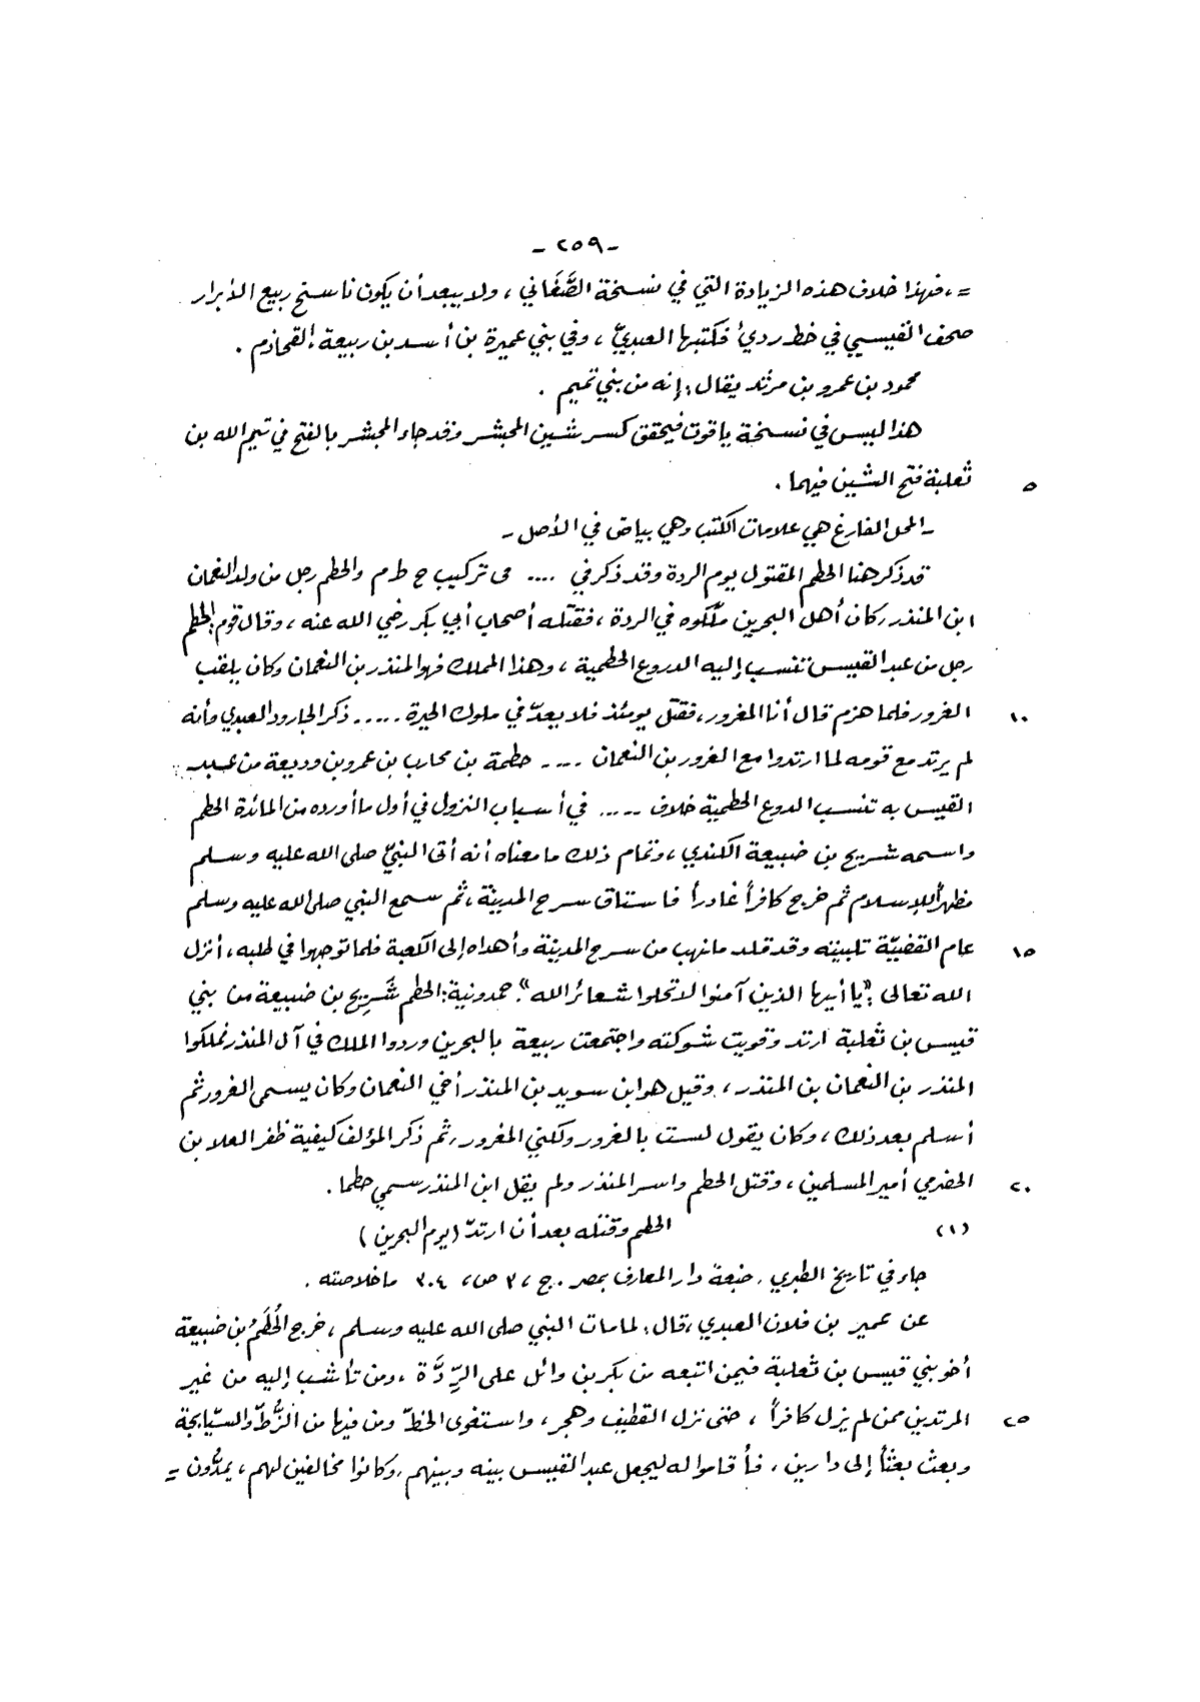 - ٢٥٩ -
= ، فهذا خلاف هذه الزيادة التي في نسخة الصَّغَاني ، ولا يبعد أن يكون ناسخ ربيع الأبرار
صحف القيسي في خط رديْ فكتبها العبديّ ، وفي بني عميرة بن أسد بن ربيعة : القحاذم .
محمود بن عمرو بن مرثد يقال : إنه من بني تميم .
هذا ليس في نسخة ياقوت فيحقق كسر شين المجشر وقد جاء المجشر بالفتح في تيم الله بن
٥ ثعلبة فتح الشين فيهما .
- المحل الفارغ هي علامات الكتب وهي بياض في الأصل -
قد ذكر هنا الحطم المقتول يوم الردة وقد ذكر في .... في تركيب ح ط م والحطم رجل من ولد النعمان
ابن المنذر ، كان أهل البحرين ملّكوه في الردة ، فقتله أصحاب أبي بكر رضي الله عنه ، وقال قوم : الحطم
رجل من عبد القيس تنسب إليه الدروع الحطمية ، وهذا المملك فهو المنذر بن النعمان وكان يلقب
١٠ الغرور فلما هزم قال أنا المغرور ، فقتل يومئذ فلا يعدّ في ملوك الحيرة ..... ذكر الجارود العبدي وأنه
لم يرتد مع قومه لما ارتدوا مع الغرور بن النعمان .... حطمة بن محارب بن عمرو بن وديعة من عبد
القيس به تنسب الدروع الحطمية خلاف ..... في أسباب النزول في أول ما أورده من المائدة الحطم
واسمه شريح بن ضبيعة الكندي ، وتمام ذلك ما معناه أنه أتى النبيّ صلى الله عليه وسلم
مظهراً للإسلام ثم خرج كافراً غادراً فاستاق سرح المدينة ، ثم سمع النبي صلى الله عليه وسلم
١٥ عام القضيّة تلبيته وقد قلد ما نهب من سرح المدينة وأهداه إلى الكعبة فلما توجهوا في طلبه ، أنزل
الله تعالى : "يا أيها الذين آمنوا لا تحلوا شعائر الله" . حمدونية : الحطم شَرِيح بن ضبيعة من بني
قيس بن ثعلبة ارتد وقويت شوكته واجتمعت ربيعة بالبحرين وردوا الملك في آل المنذر فملكوا
المنذر بن النعمان بن المنذر ، وقيل هو ابن سويد بن المنذر أخي النعمان وكان يسمى الغرور ثم
أسلم بعد ذلك ، وكان يقول لست بالغرور ولكني المغرور ، ثم ذكر المؤلف كيفية ظفر العلاء بن
٢٠ الحضرمي أمير المسلمين ، وقتل الحطم واسر المنذر ولم يقل ابن المنذر سمي حطما .
(١) الحطم وقتله بعد أن ارتدّ (يوم البحرين)
جاء في تاريخ الطبري . طبعة دار المعارف بمصر . ج ، ٣ ص ، ٣٠٤ ما خلاصته .
عن عمير بن فلان العبدي ، قال : لما مات النبي صلى الله عليه وسلم ، خرج الحُطَمُ بن ضبيعة
أخو بني قيس بن ثعلبة فيمن اتبعه من بكر بن وائل على الرِّدَّة ، ومن تأشب إليه من غير
٢٥ المرتدين ممن لم يزل كافراً ، حتى نزل القطيف وهجر ، واستغوى الخطّ ومن فيها من الزُّطّ والسّيابجة
وبعث بعثاً إلى دارين ، فأقاموا له ليجعل عبد القيس بينه وبينهم ، وكانوا مخالفين لهم ، يمدُّون =